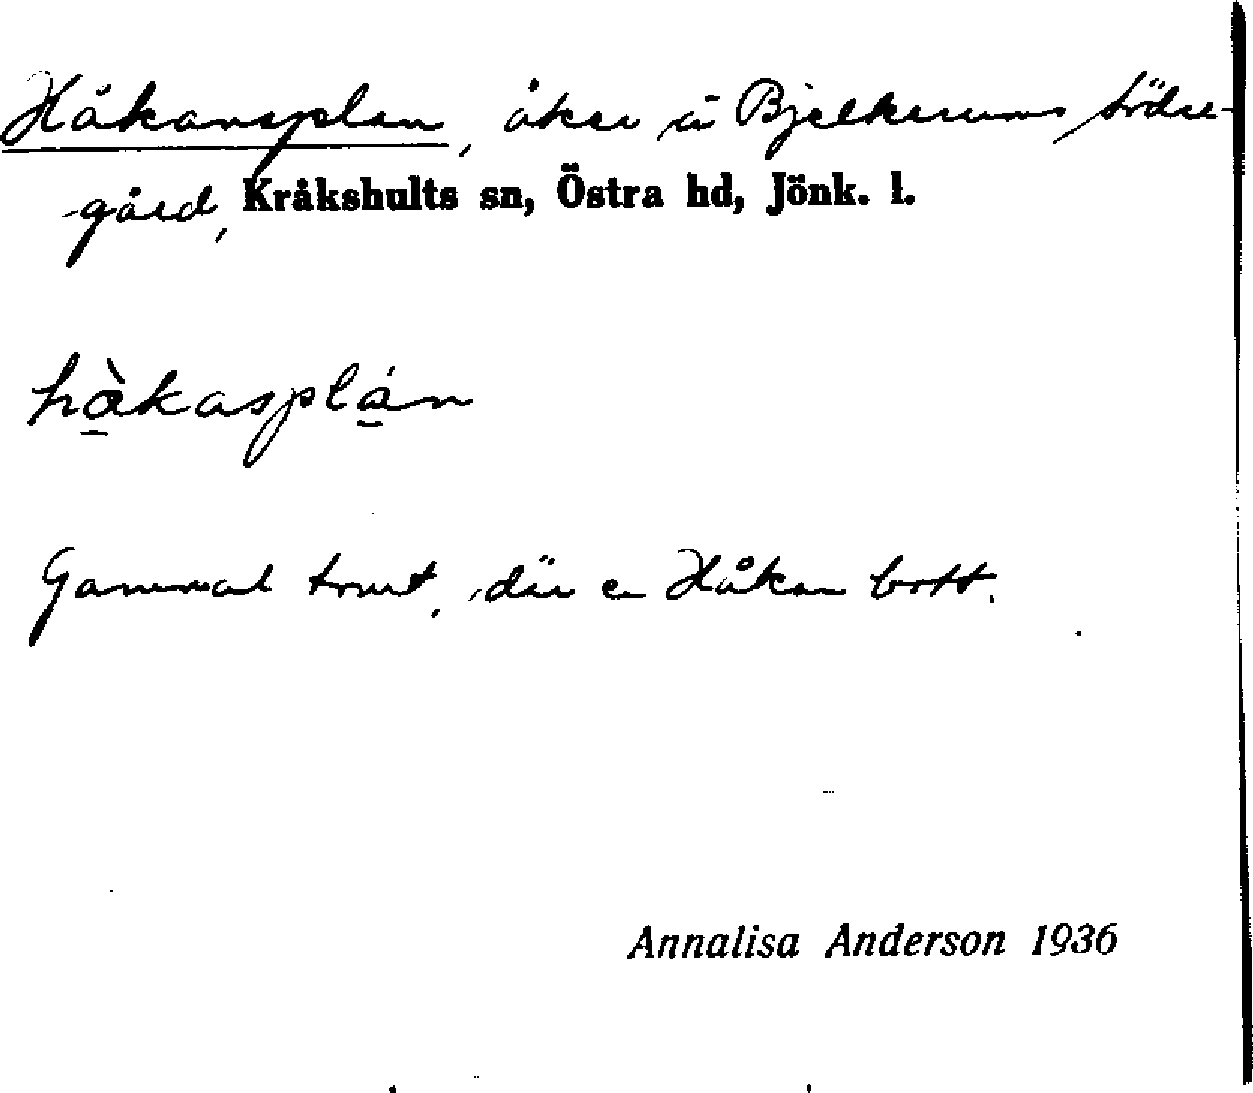 Håkansplan, åker å Bjelkerums södre-
gård, Kråkshults sn, Östra hd, Jönk. l.
hà̱kasplá̱n
Gammal tomt, där en Håkan bott.
Annalisa Anderson 1936